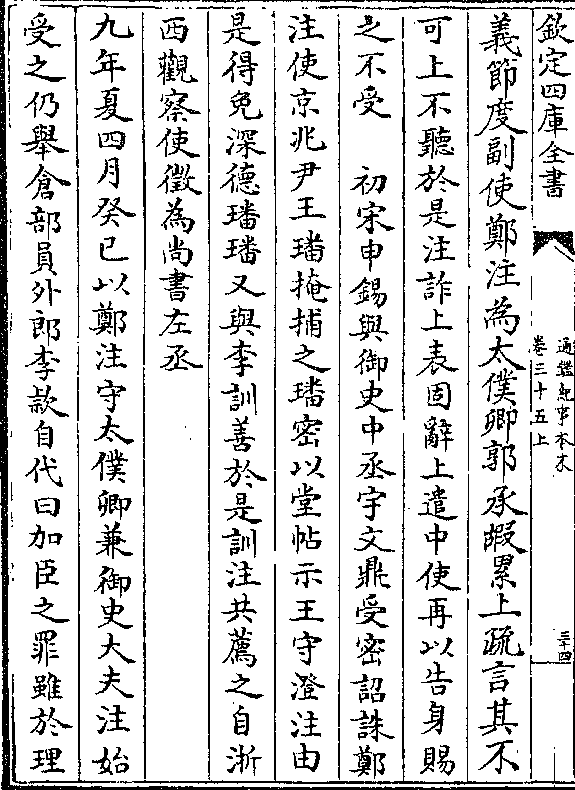 欽定四庫全書
通鑑紀事本末
卷三十五上
三十四
義節度副使鄭注為太僕卿郭承嘏累上疏言其不
可上不聽於是注詐上表固辭上遣中使再以告身賜
之不受　初宋申錫與御史中丞宇文鼎受密詔誅鄭
注使京兆尹王璠掩捕之璠密以堂帖示王守澄注由
是得免深德璠璠又與李訓善於是訓注共薦之自浙
西觀察使徵為尚書左丞
九年夏四月癸巳以鄭注守太僕卿兼御史大夫注始
受之仍舉倉部員外郎李款自代曰加臣之罪雖於理